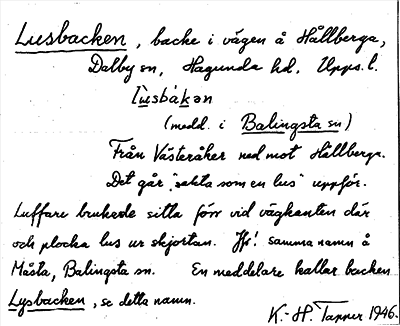 Lusbacken, backe i vägen å Hållberga,
Dalby sn, Hagunda hd, Upps. l.
lùsbákan
(medd. i Balingsta sn)
Från Västeråker ned mot Hållberga.
Det går "sakta som en lus" uppför.
Luffare brukade sitta förr vid vägkanten där
och plocka lus ur skjortan. Jfr! samma namn å
Måsta, Balingsta sn. En meddelare kallar backen
Lysbacken, se detta namn.
K.-H. Tapper 1946.